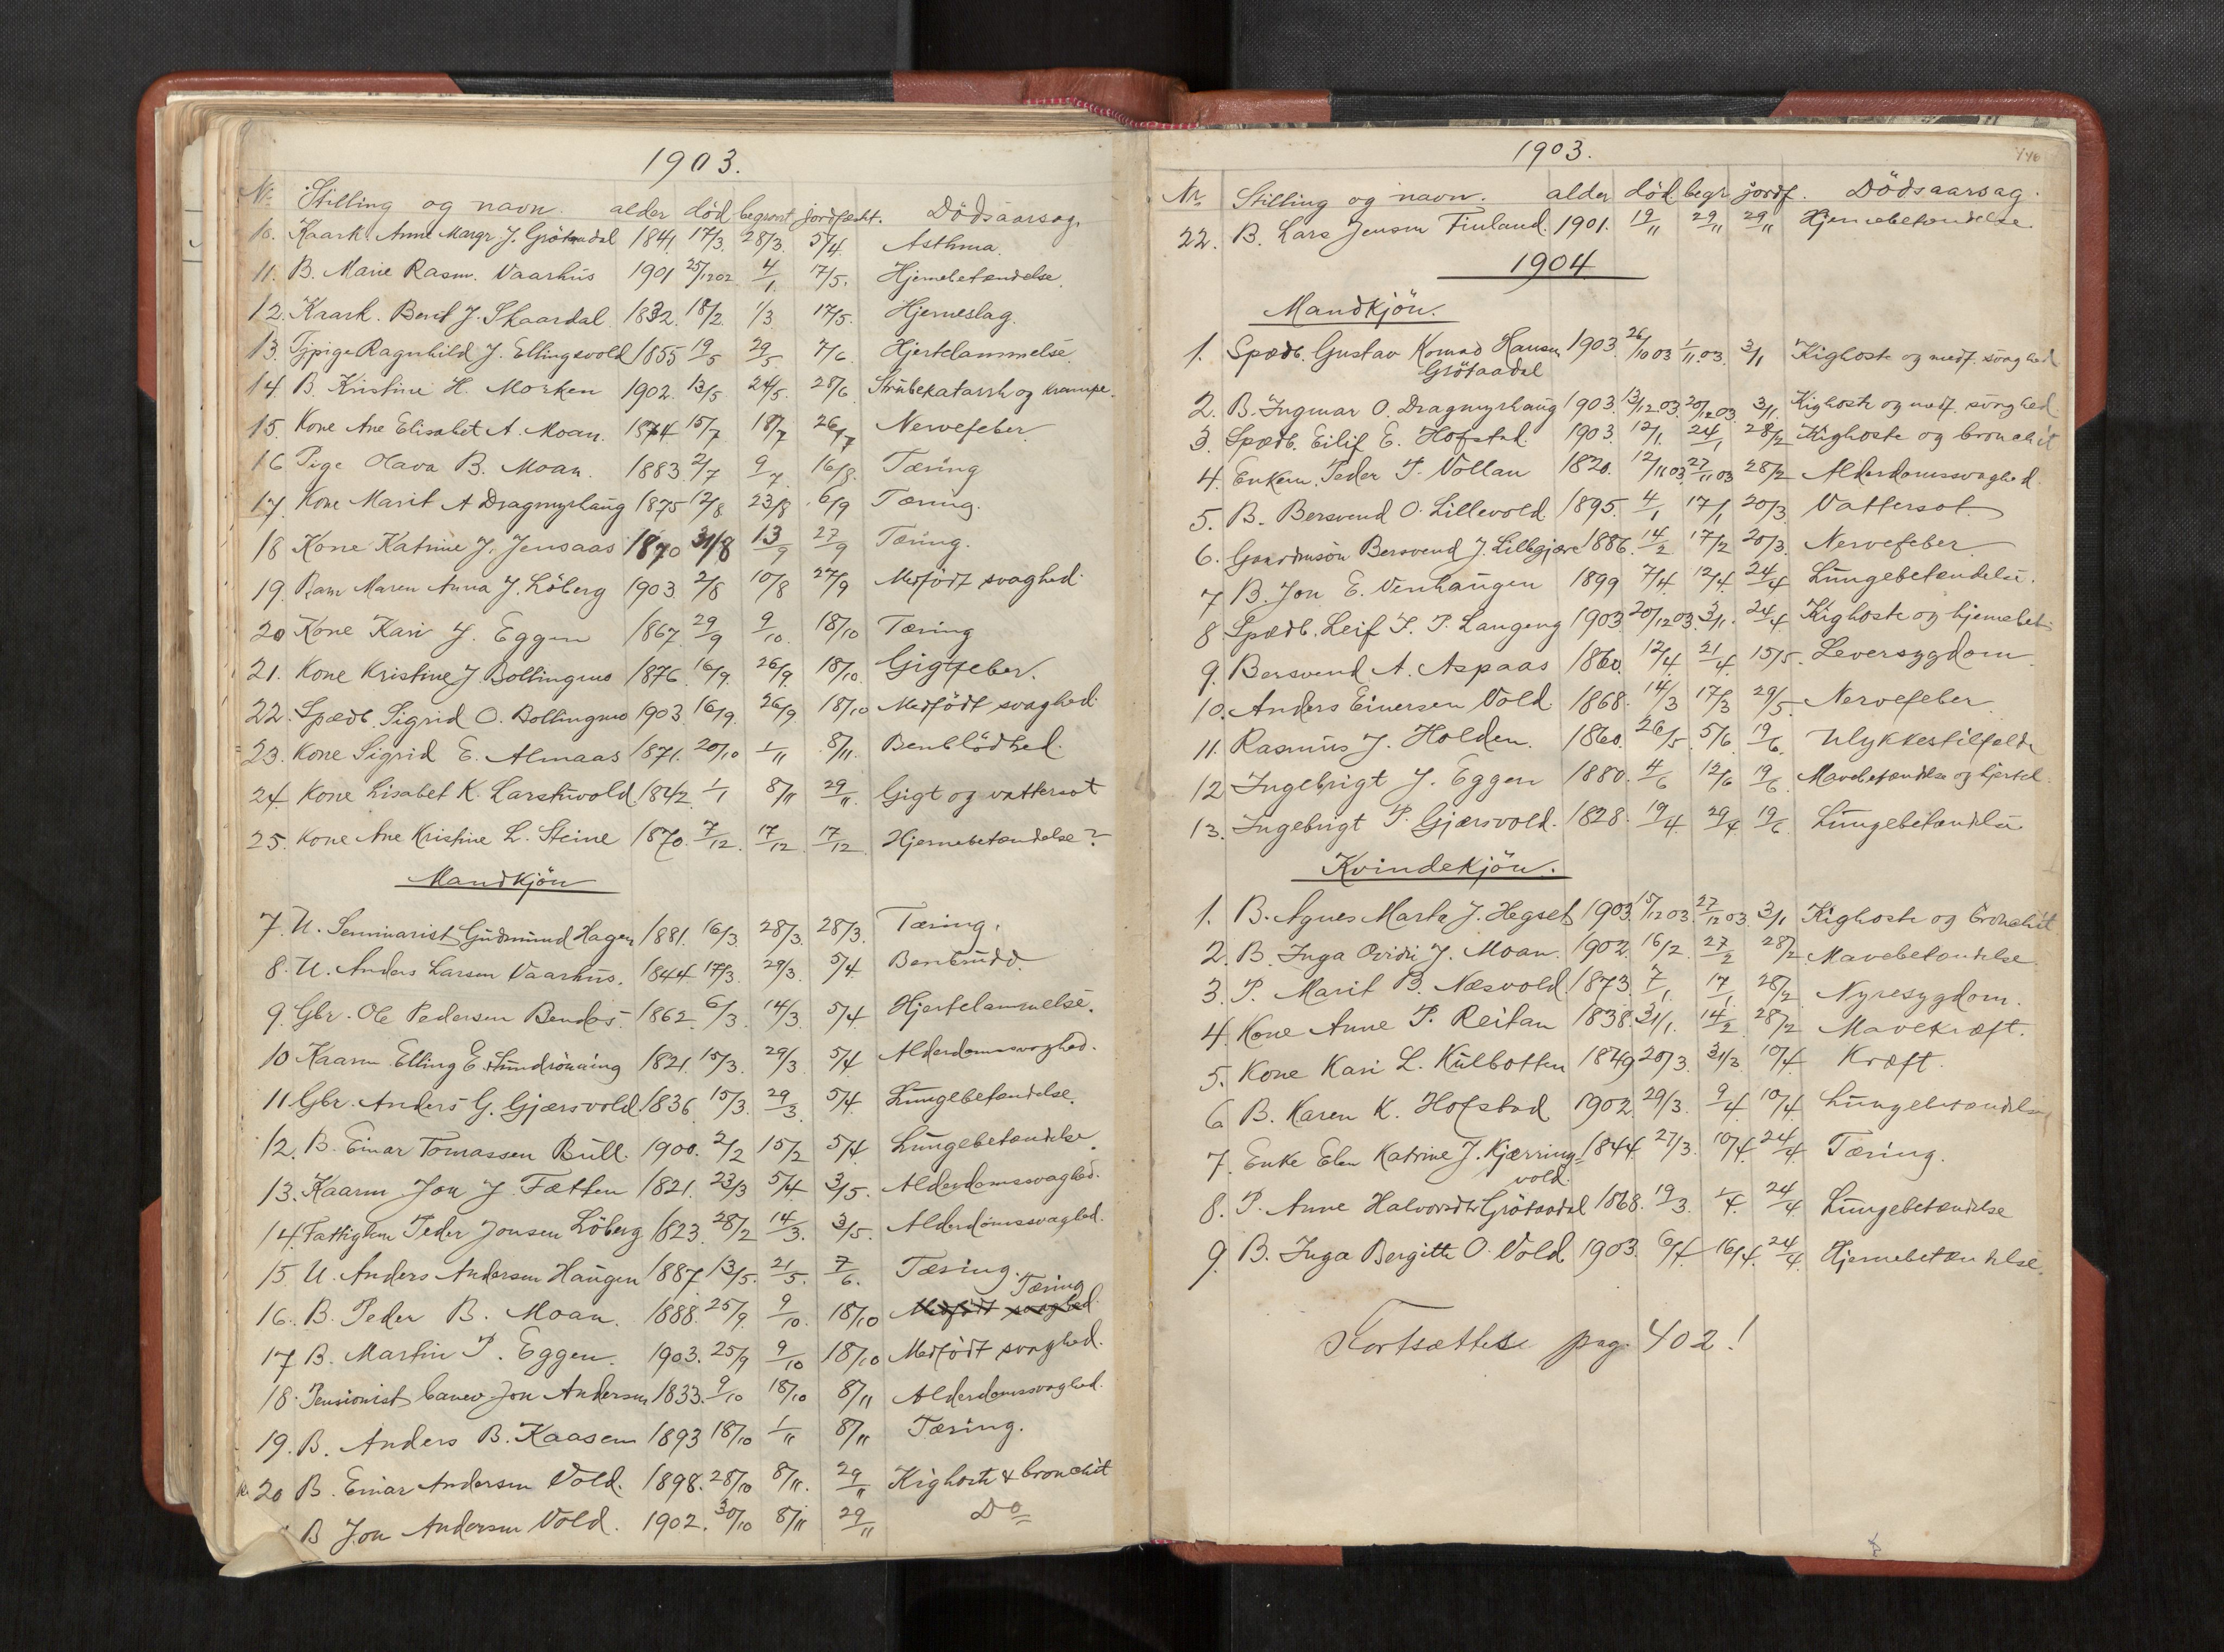 1903.
Nr. Stilling og navn. alder død begravet jordfæstet. Dödsaarsag.
10. Kaark. Anne Margr. J. Grötaadal 1841. 17/3. 28/3. 5/4. Asthma.
11. B. Marie Rasm. Vaarhus 1901 25/12 02 4/1. 17/5. Hjernebetændelse.
12. Kaark. Berit J. Skaardal 1832. 18/2. 1/3 17/5. Hjerneslag.
13. Tjpige Ragnhild J. Ellingsvold 1855 19/5 29/5 7/6. Hjertelammelse.
14. B. Kristine H. Morken 1902. 13/5 24/5. 28/6. Strubekatarrh og krampe.
15. Kone Ane Elisabet A. Moan. 1874 15/7 18/7 26/7 Nervefeber
16 Pige Olava B. Moan. 1883 2/7 9/7. 16/8. Tæring
17. Kone Marit A Dragmyrhaug 1875 12/8. 23/8 6/9 Tæring.
18 Kone Katrine J. Jensaas 1870 31/8 13/9 27/9 Tæring.
19. Barn Maren Anna J. Löberg 1903 2/8 10/8 27/9 Medfödt svaghed.
20 Kone Kari J. Eggen 1867. 29/9 9/10. 18/10 Tæring
21. Kone Kristine J. Bollingmo 1876. 16/9. 26/9. 18/10. Gigtfeber.
22. Spædb. Sigrid O. Bollingmo 1903. 16/9. 26/9. 18/10 Medfödt svaghed.
23. Kone Sigrid E. Almaas 1871. 20/10 1/11 8/11. Benblödhed.
24. Kone Lisabet K. Larshusvold 1842. 1/1 8/11 29/11. Gigt og vattersot
25. Kone Ane Kristine L. Steine 1870. 7/12. 17/12 17/12 Hjernebetændelse?
Mandkjön
7. U. Seminarist Gudmund Hagen 1881. 16/3. 28/3. 28/3. Tæring.
8. U. Anders Larsen Vaarhus. 1844. 17/3. 29/3. 5/4 Benbrudd.
9. Gbr. Ole Pedersen Bendos. 1862. 6/3. 14/3. 5/4 Hjertelammelse.
10 Kaarm Elling E. 1821. 15/3. 29/3 5/4 Alderdomssvaghed.
11 Gbr. Anders G. Gjærsvold. 1836 15/3. 29/3 5/4 Lungebetændelse.
12. B. Einar Tomassen Bull. 1900. 2/2 15/2 5/4 Lungebetændelse.
13. Kaarm Jon J. Fætten 1821. 23/3 5/4 3/5. Alderdomssvaghed.
14. Fattiglem Peder Jonsen Löberg 1823. 28/2 14/3. 3/5. Alderdomssvaghed.
15 U. Anders Andersen Haugen 1887 13/5. 21/5. 7/6. Tæring.
Tæring
16. B. Peder B. Moan. 1888. 25/9. 9/10. 18/10 Medfödt svaghed.
17 B. Martin P. Eggen. 1903. 25/9 9/10 18/10 Medfödt svaghed.
18. Pensionist Jon Andersen 1833. 9/10 18/10 8/11 Alderdomssvaghed.
19. B. Anders B. Kaasen 1893 18/10 1/11 8/11 Tæring.
20 B. Einar Andersen Vold. 1898. 28/10 8/11. 29/11 Kighoste & bronchit
B Jon Andersen Vold. 1902. 30/10 8/11 29/11 Do
1903.
146
Nr. Stilling og navn. alder död begr. jordf. Dödsaarsag.
22. B. Lars Jensen Finland. 1901. 19/11 29/11 29/11 Hjernebetændelse
1904
Mandkjön.
1. Spædb. Gustav Konrad Hansen 1903. 26/10 03 1/11 03. 3/1 Kighoste og medf. svaghed
Grötaadal
2. B. Ingmar O. Dragmyrhaug 1903. 13/12 03. 20/12 03 3/1. Kighoste og medf. svaghed.
3. Spædb. Eilif E. Hofstad. 1903. 12/1. 24/1 28/2 Kighoste og bronchit
4. Enkem. Peder P. Vollan 1820. 12/11 03. 27/11 03 28/2 Alderdomssvaghed.
5. B. Bersvend O. Lillevold. 1895. 4/1 17/1 20/3. Vattersot.
6. Gaardmsön Bersvend J. Lillegjære 1886. 14/2 17/2 20/3. Nervefeber.
7 B. Jon E. Venhaugen 1899 7/4. 12/4. 24/4 Lungebetændelse.
8 Spædb. Leif P. P. Langeng 1903. 20/12 03. 3/1. 24/4. Kighoste og hjernebet.
9. Bersvend A. Aspaas 1860. 12/4. 21/4. 15/5. Leversygdom
10. Anders Einersen Vold. 1868. 14/3 17/3 29/5. Nervefeber
11. Rasmus J. Holden. 1860. 26/5 5/6. 19/6. Ulykkestilfælde
12 Ingebrigt J. Eggen 1880. 4/6 12/6 19/6. Mavebetændelse og hjertel.
13. Ingebrigt P. Gjærsvold. 1828. 19/4. 29/4. 19/6. Lungebetændelse
Kvindekjön.
1. B. Agnes Marta J. Hegset 1903. 15/12 03. 27/12 03 3/1 Kighoste og bronchit
2. B. Inga Ovidi J. Moan. 1902. 16/2. 27/2 28/2. Mavebetændelse
3. P. Marit B. Næsvold. 1873. 7/1. 17/1. 28/2. Nyresygdom.
4. Kone Anne P. Reitan 1838. 31/1. 14/2 28/2 Mavekræft.
5. Kone Kari L. Kulbotten 1849 20/3. 31/3. 10/4 Kræft.
6 B. Karen K. Hofstad 1902. 29/3. 9/4 10/4 Lungebetændelse
7. Enke Elen Katrine J. Kjærring= 1844. 27/3. 10/4. 24/4. Tæring.
vold.
8. P. Anne Halvorsdtr Grötaadal 1868. 19/3. 1/4. 24/4 Lungebetændelse
9. B. Inga Bergitte O. Vold. 1903. 6/4. 16/4. 24/4. Hjernebetændelse.
Fortsættes pag. 402!